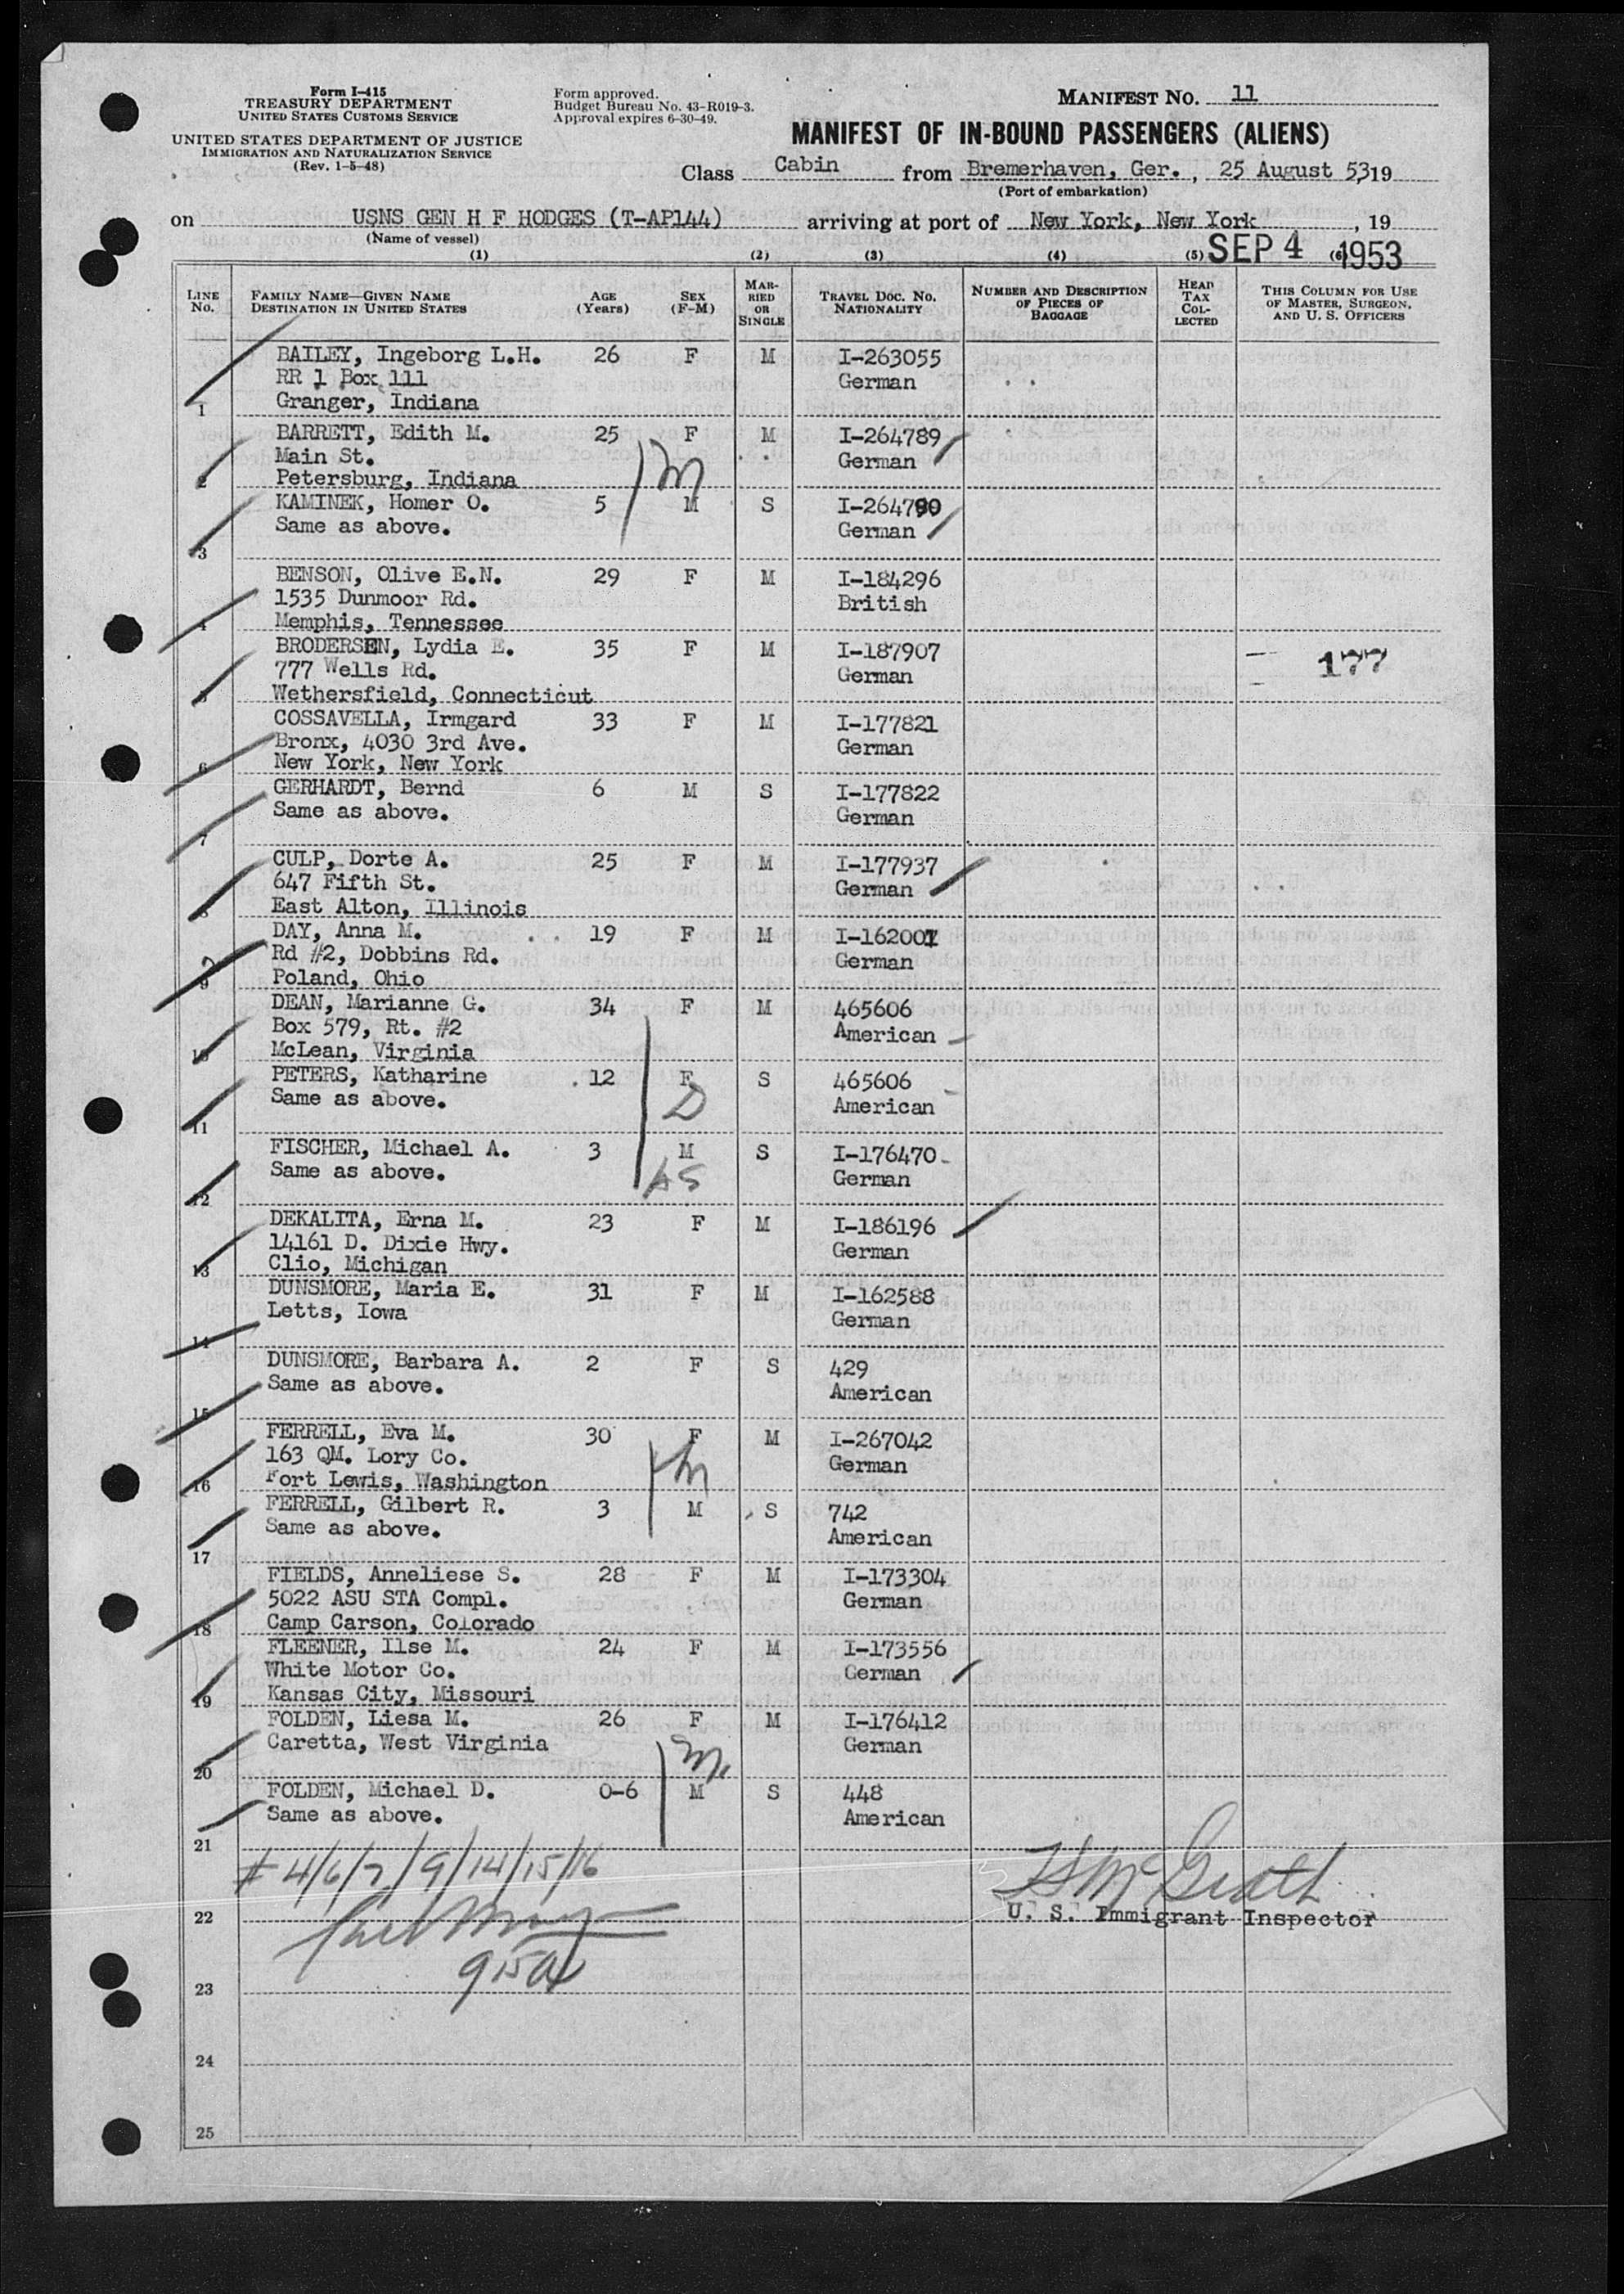 Form I-415
TREASURY DEPARTMENT
UNITED STATES CUSTOMS SERVICE
UNITED STATES DEPARTMENT OF JUSTICE
IMMIGRATION AND NATURALIZATION SERVICE
(Rev. 1-5-48)
Form approved.
Budget Bureau No. 43-R019-3.
Approval expires 6-30-49.
MANIFEST NO. 11
MANIFEST OF IN-BOUND PASSENGERS (ALIENS)
Class Cabin from Bremerhaven, Ger., 25 August 53, 19
(Port of embarkation)
on USNS GEN H F HODGES (T-AP144) arriving at port of New York, New York, 19
(Name of vessel)
SEP 4 1953
(1) (2) (3) (4) (5) (6)
LINE NO. FAMILY NAME—GIVEN NAME DESTINATION IN UNITED STATES AGE (Years) SEX (F-M) MARRIED OR SINGLE TRAVEL DOC. NO. NATIONALITY NUMBER AND DESCRIPTION OF PIECES OF BAGGAGE HEAD TAX COLLECTED THIS COLUMN FOR USE OF MASTER, SURGEON, AND U. S. OFFICERS
BAILEY, Ingeborg L.H. 26 F M I-263055
RR 1 Box 111 German
1 Granger, Indiana
BARRETT, Edith M. 25 F M I-264789
Main St. German
2 Petersburg, Indiana
M
KAMINEK, Homer O. 5 M S I-264790
Same as above. German
3
BENSON, Olive E.N. 29 F M I-184296
1535 Dunmoor Rd. British
4 Memphis, Tennessee
BRODERSEN, Lydia E. 35 F M I-187907 177
777 Wells Rd. German
5 Wethersfield, Connecticut
COSSAVELLA, Irmgard 33 F M I-177821
Bronx, 4030 3rd Ave. German
6 New York, New York
GERHARDT, Bernd 6 M S I-177822
Same as above. German
7
CULP, Dorte A. 25 F M I-177937
647 Fifth St. German
8 East Alton, Illinois
DAY, Anna M. 19 F M I-162001
Rd #2, Dobbins Rd. German
9 Poland, Ohio
DEAN, Marianne G. 34 F M 465606
Box 579, Rt. #2 American
10 McLean, Virginia
PETERS, Katharine 12 F S 465606
Same as above. American
D
11
FISCHER, Michael A. 3 M S I-176470
Same as above. German
12
DEKALITA, Erna M. 23 F M I-186196
14161 D. Dixie Hwy. German
13 Clio, Michigan
DUNSMORE, Maria E. 31 F M I-162588
Letts, Iowa German
14
DUNSMORE, Barbara A. 2 F S 429
Same as above. American
15
FERRELL, Eva M. 30 F M I-267042
163 QM. Lory Co. German
16 Fort Lewis, Washington
M
FERRELL, Gilbert R. 3 M S 742
Same as above. American
17
FIELDS, Anneliese S. 28 F M I-173304
5022 ASU STA Compl. German
18 Camp Carson, Colorado
FLEENER, Ilse M. 24 F M I-173556
White Motor Co. German
19 Kansas City, Missouri
FOLDEN, Liesa M. 26 F M I-176412
Caretta, West Virginia German
M
20
FOLDEN, Michael D. 0-6 M S 448
Same as above. American
21
# 4/6/7/9/14/15/16
HS McGrath
22 U. S. Immigrant Inspector
23
24
25